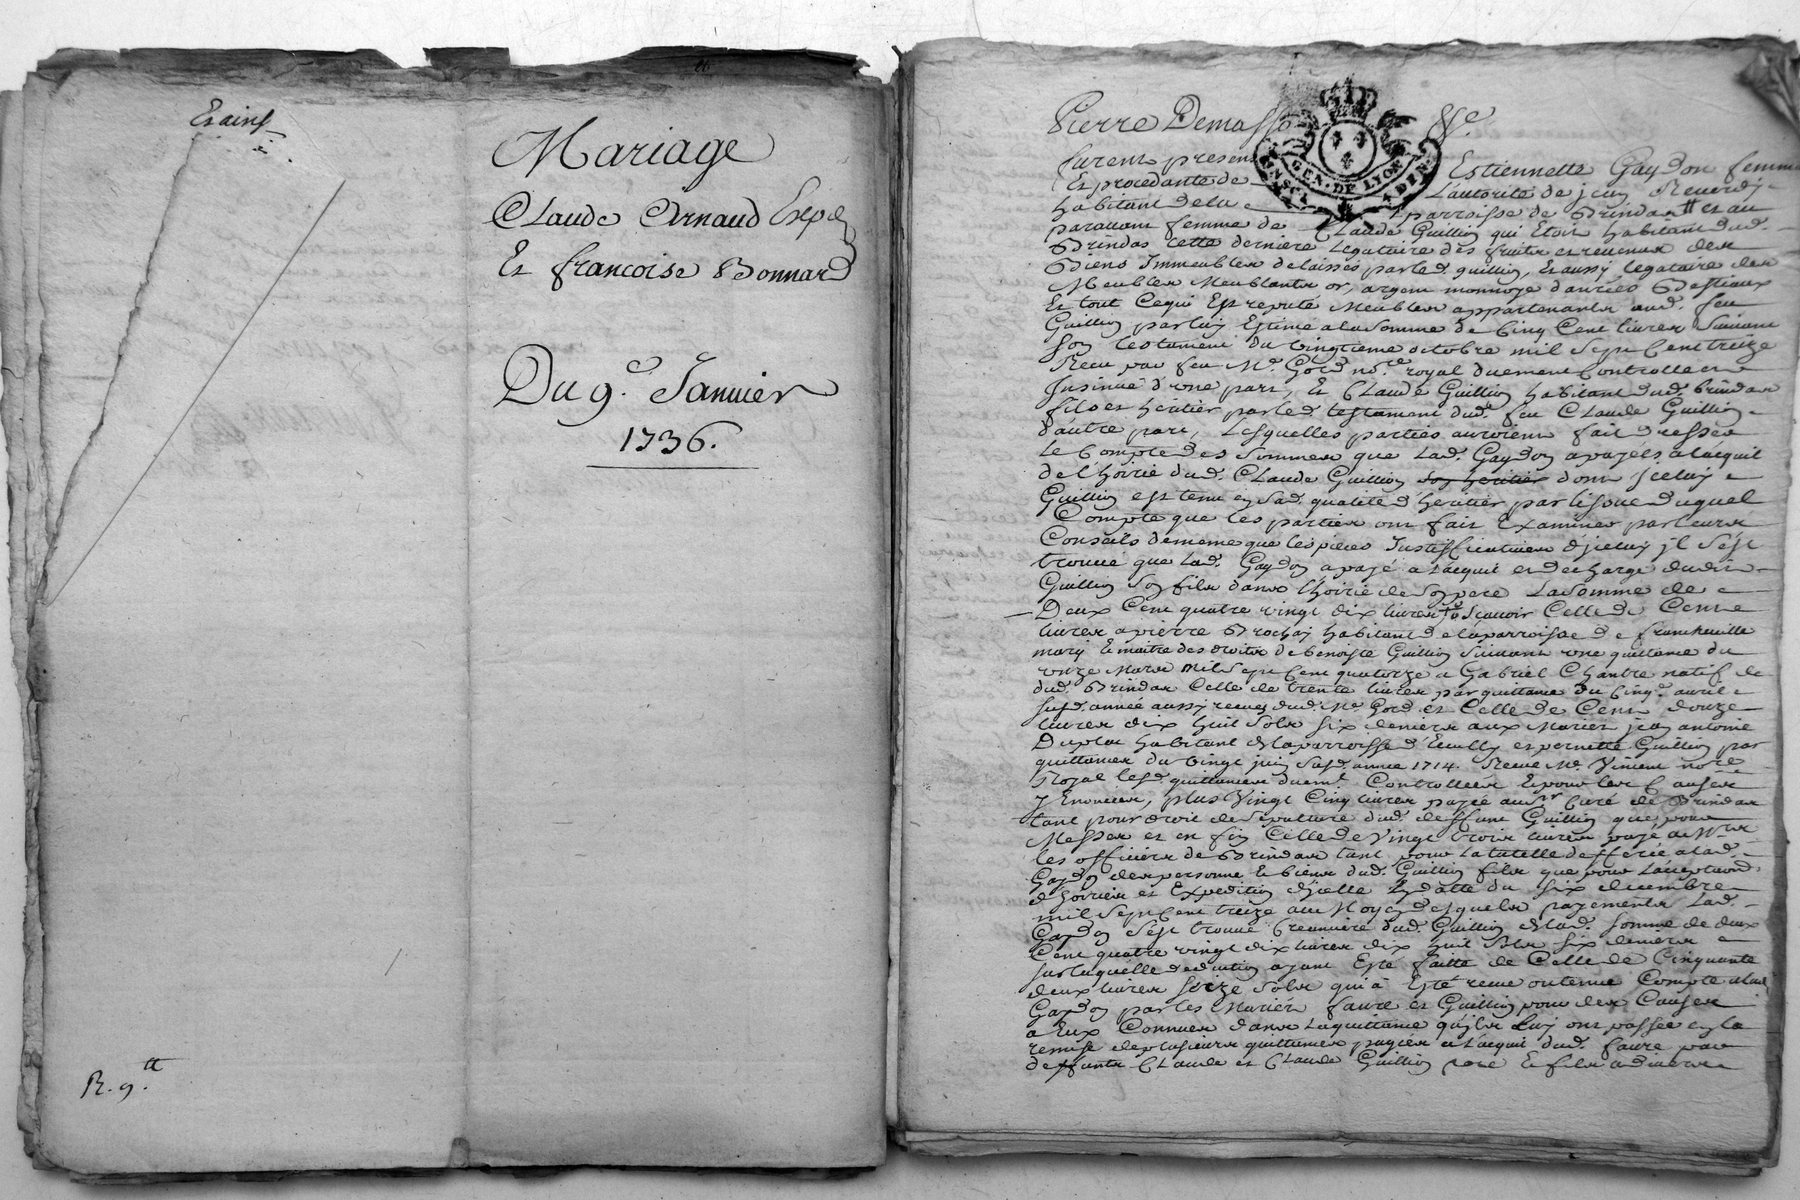 Mariage
Claude Arnaud
Et francoise Bonnard
Du 9.e Janvier
1736.
R. 9.a
Pierre Demasso
GEN. DE LYON
furent presens Estiennette Gaydon femme
Et procedante de L'autorité de jean Reverdy
habitant de la parroisse de Brindas et au
paravant femme de Claude Guillin qui Etoit habitant dud.
Brindas cette derniere Legataire des fruits et revenus des
Biens Immeubles delaissés par led. guillin, Et aussy legataire des
Meubles Meublants or, argent monnoye danrées Bestiaux
Et tout Cequi Est reputé Meubles appartenants aud. feu
Guillin par luy Estimé a la somme de Cinq Cent livres Suivant
son testament du vingtieme octobre mil Sept Cent treize
Receu par feu Me. Gord nore. royal duement Controllé et
Insinué d'une part, Et Claude Guillin habitant dud. brindas
fils et heritier par led. testament dud. feu Claude Guillin
d'autre part, Lesquelles parties auroient fait dresser
Le Compte des Sommes que lad. Gaydon a payées a lacquit
de l'hoirie dud. Claude Guillin son heritier dont Iceluy
Guillin est tenu en sad. qualité d'heritier par lissue duquel
Compte que les parties ont fait Examiner par leurs
Conseils de meme que les pieces Justifficatives d'jceluy jl s'est
trouvé que lad. Gaydon a payé a Lacquit et decharge dudit
Guillin son fils dans l'hoirie de son pere La Somme de
Deux Cent quatre vingt dix livres Scavoir Celle de Cent
livres a pierre Brochay habitant de la parroisse de francheville
mary Et maitre des droits de benoiste Guillin Suivant une quittance du
onze Mars Mil Sept Cent quatorze a Gabriel Chantre natif de
dud. Brindas Celle de trente livres par quittance du Cinqe. avril
susd. année aussy receues dud. Me. Gord et Celle de Cent douze
livres dix huit Sols six deniers aux Mariés jean antoine
Duplat habitant de la parroisse d'Ecully et pernette Guillin par
quittance du vingt juin susd. année 1714. Receue Me. Vincent nore
Royal lesd. quittances duemt. Controllées Et pour les Causes
y Enoncées, plus Vingt Cinq livres payée au Sr. Curé de Brindas
tant pour droit de Sepulture dud. deffunt Guillin que pour
Messes et en fin Celle de Vingt trois livres payé a Mrs
les officiers de Brindas tant pour La tutelle defferée a lad.
Gaydon des personne Et biens dud. Guillin fils que pour
d'hoirie et Expedition d'jcelle En datte du six decembre
mil Sept Cent treize au Moyen desquels payements Lad.
Gaydon s'est trouvée Creanciere dud. Guillin de lad. somme de deux
Cent quatre vingt dix livres dix huit Sols six deniers
sur laquelle deduction ayant Esté faitte de Celle de Cinquante
deux livres seize Sols qui a Esté receue ou tenue Compte a lad
Gaydon par les Mariés faure et Guillin pour des Causes
a Eux Connues dans La quittance qu'jls Luy ont passée en la
remise de plusieurs quittances payées a Lacquit dud. faure par
deffunts Claude et Claude Guillin pere Et fils a divers